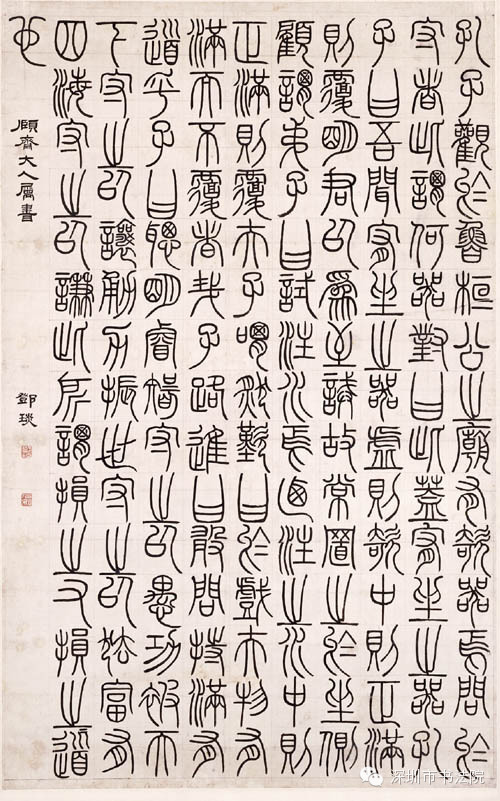 孔子觀於魯桓公之廟有欹器焉問於
守者此謂何器對曰此蓋宥坐之器孔
子曰吾聞宥坐之器虛則欹中則正滿
則覆明君以為至誡故常置之於坐側
顧謂弟子曰試注水焉迺注之水中則
正滿則覆夫子喟然歎曰於戲夫物有
滿而不覆者哉子路進曰敢問持滿有
道乎子曰聰明睿智守之以愚功被而
下守之以讓勇力振世守之以怯富有
四海守之以謙此所謂損之又損之道
也
頤齋大人屬書
鄧琰
深圳市书法院